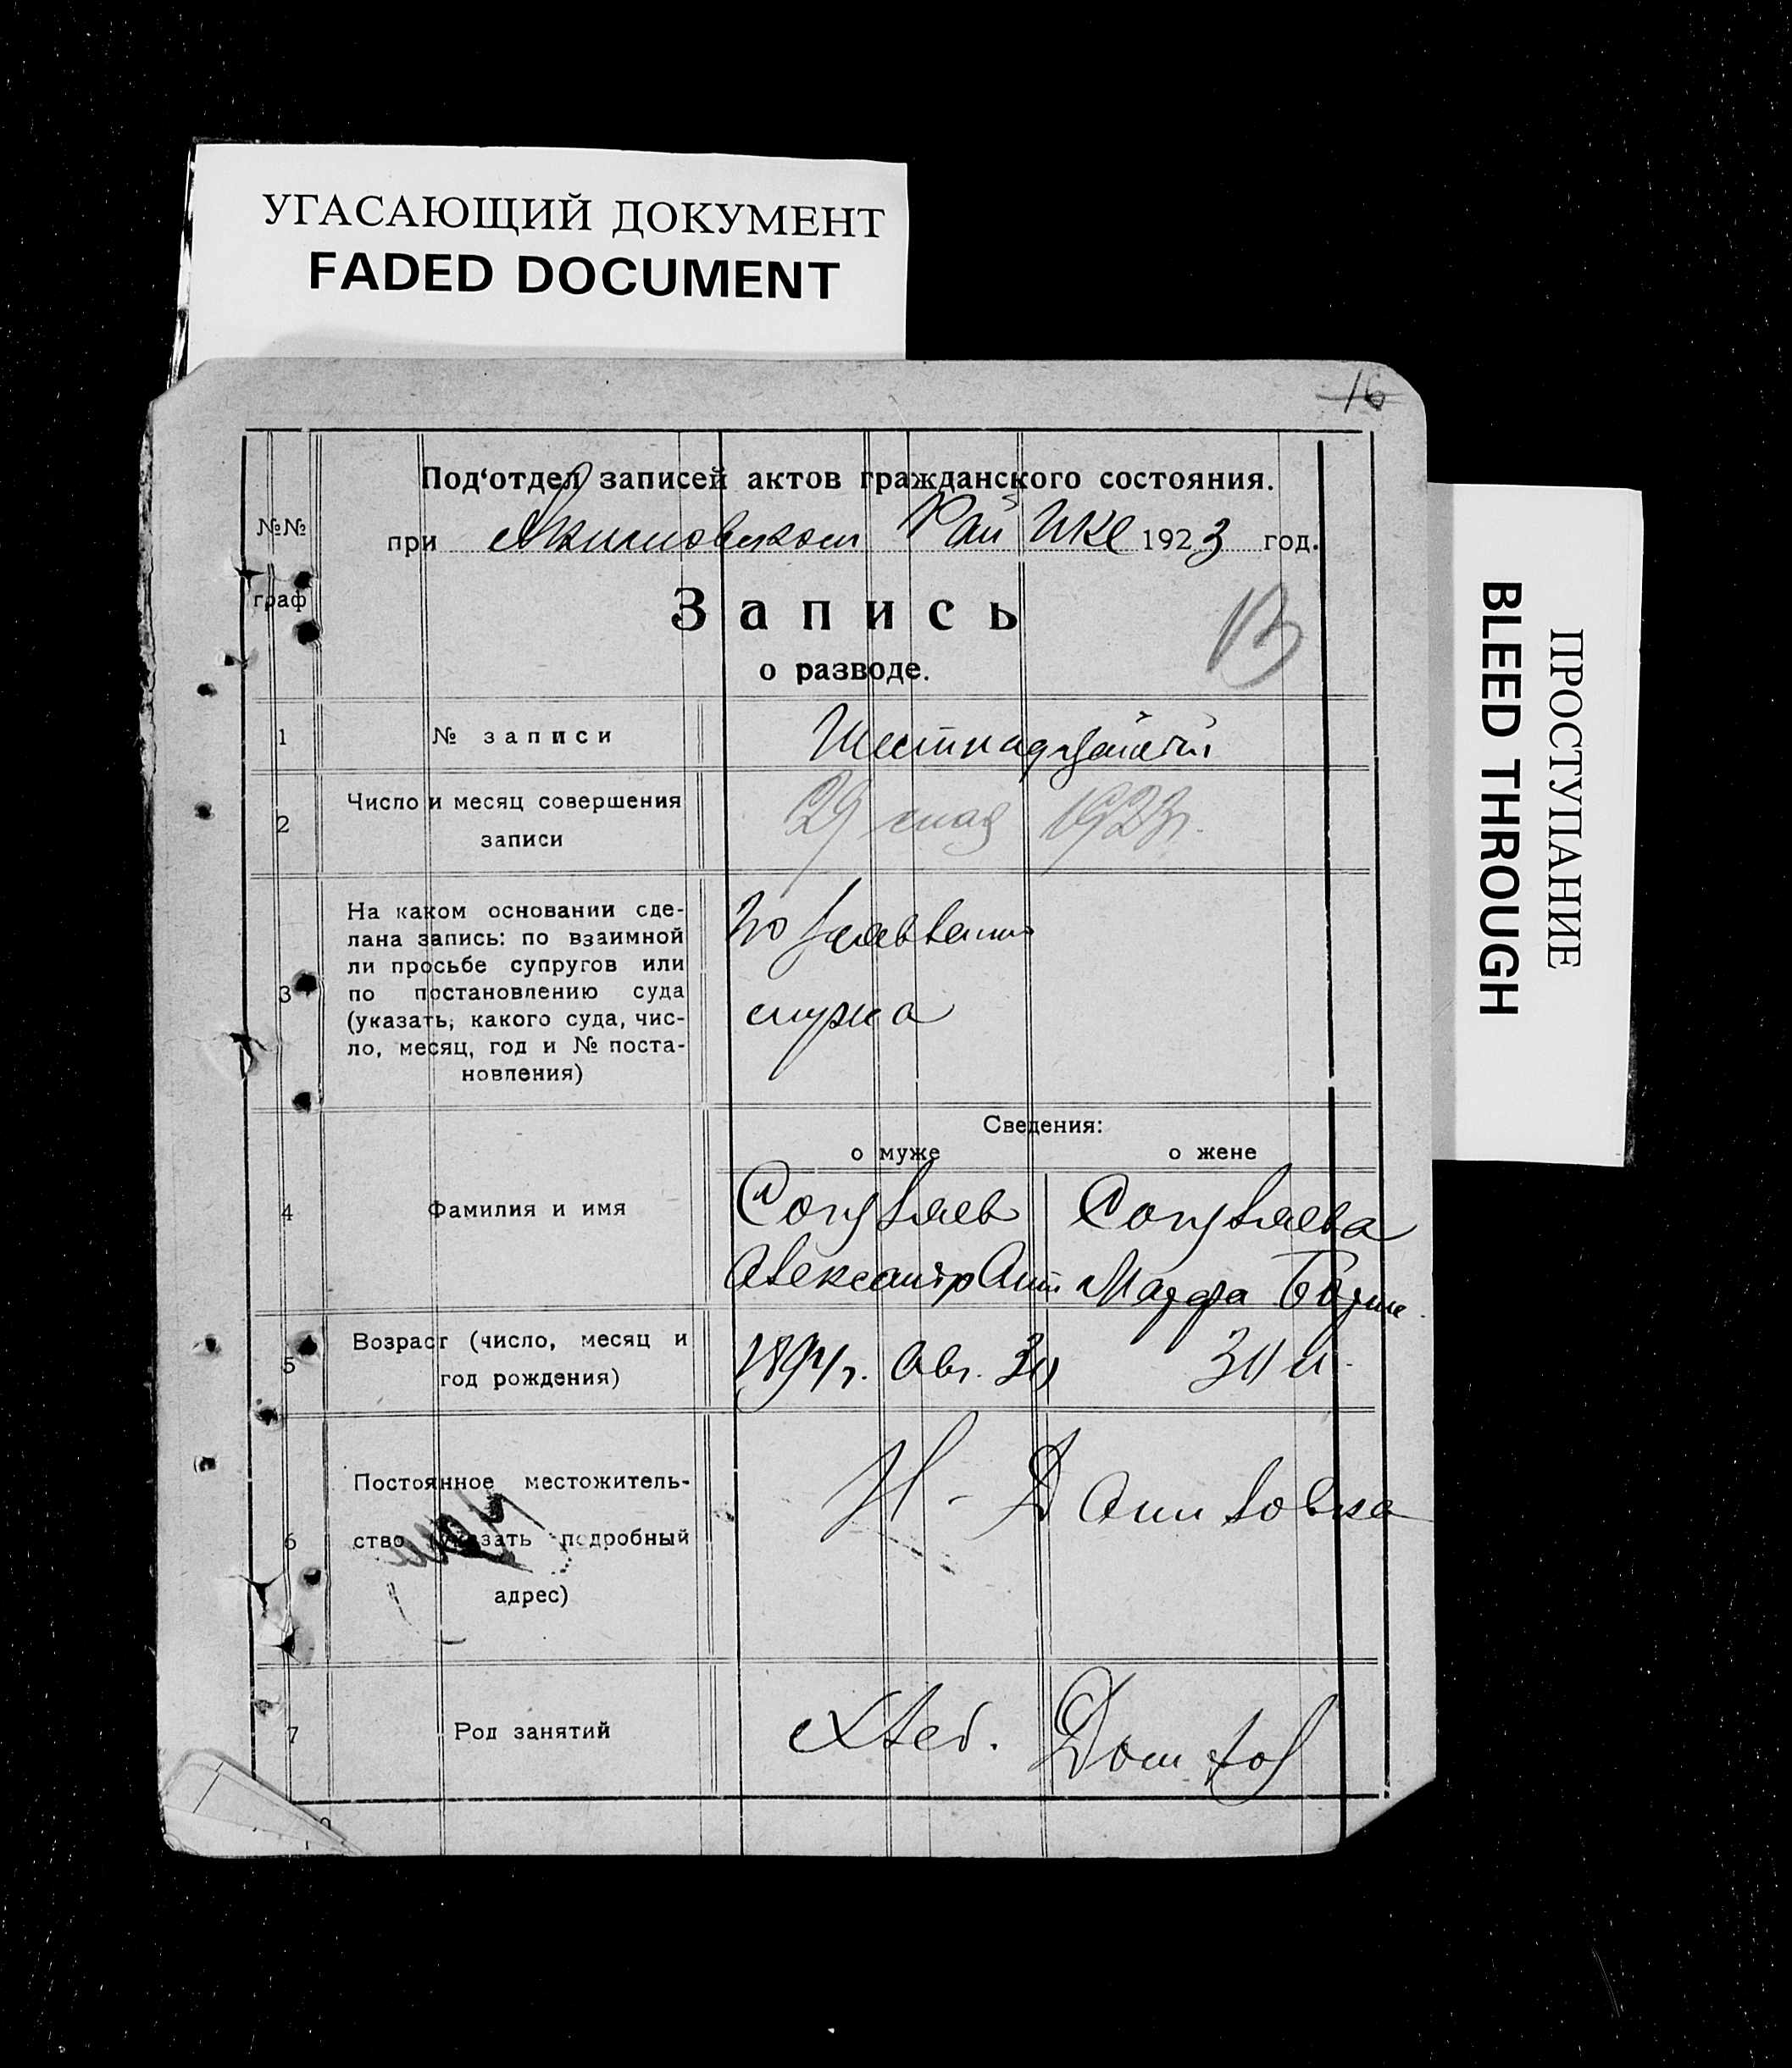 УГАСАЮЩИЙ ДОКУМЕНТ
FADED DOCUMENT
16
Под‘отдел записей актов гражданского состояния.
№№ граф
при Акимовском Рай ИКе 1923 год.
Запись
о разводе.
1 № записи Шестнадцатый
2 Число и месяц совершения
записи
29 мая 1923 г.
3 На каком основании сде-
лана запись: по взаимной
ли просьбе супругов или
по постановлению суда
(указать, какого суда, чис-
ло, месяц, год и № поста-
новления)
По заявлению
мужа
Сведения:
о муже о жене
4 Фамилия и имя
Александр Ант
5 Возраст (число, месяц и
год рождения)
Авг. 30 30 л.
6 Постоянное местожитель-
ство (указать подробный
адрес)
Н-Даниловка
7 Род занятий
Хлеб. Дом. хоз
ПРОСТУПАНИЕ
BLEED THROUGH